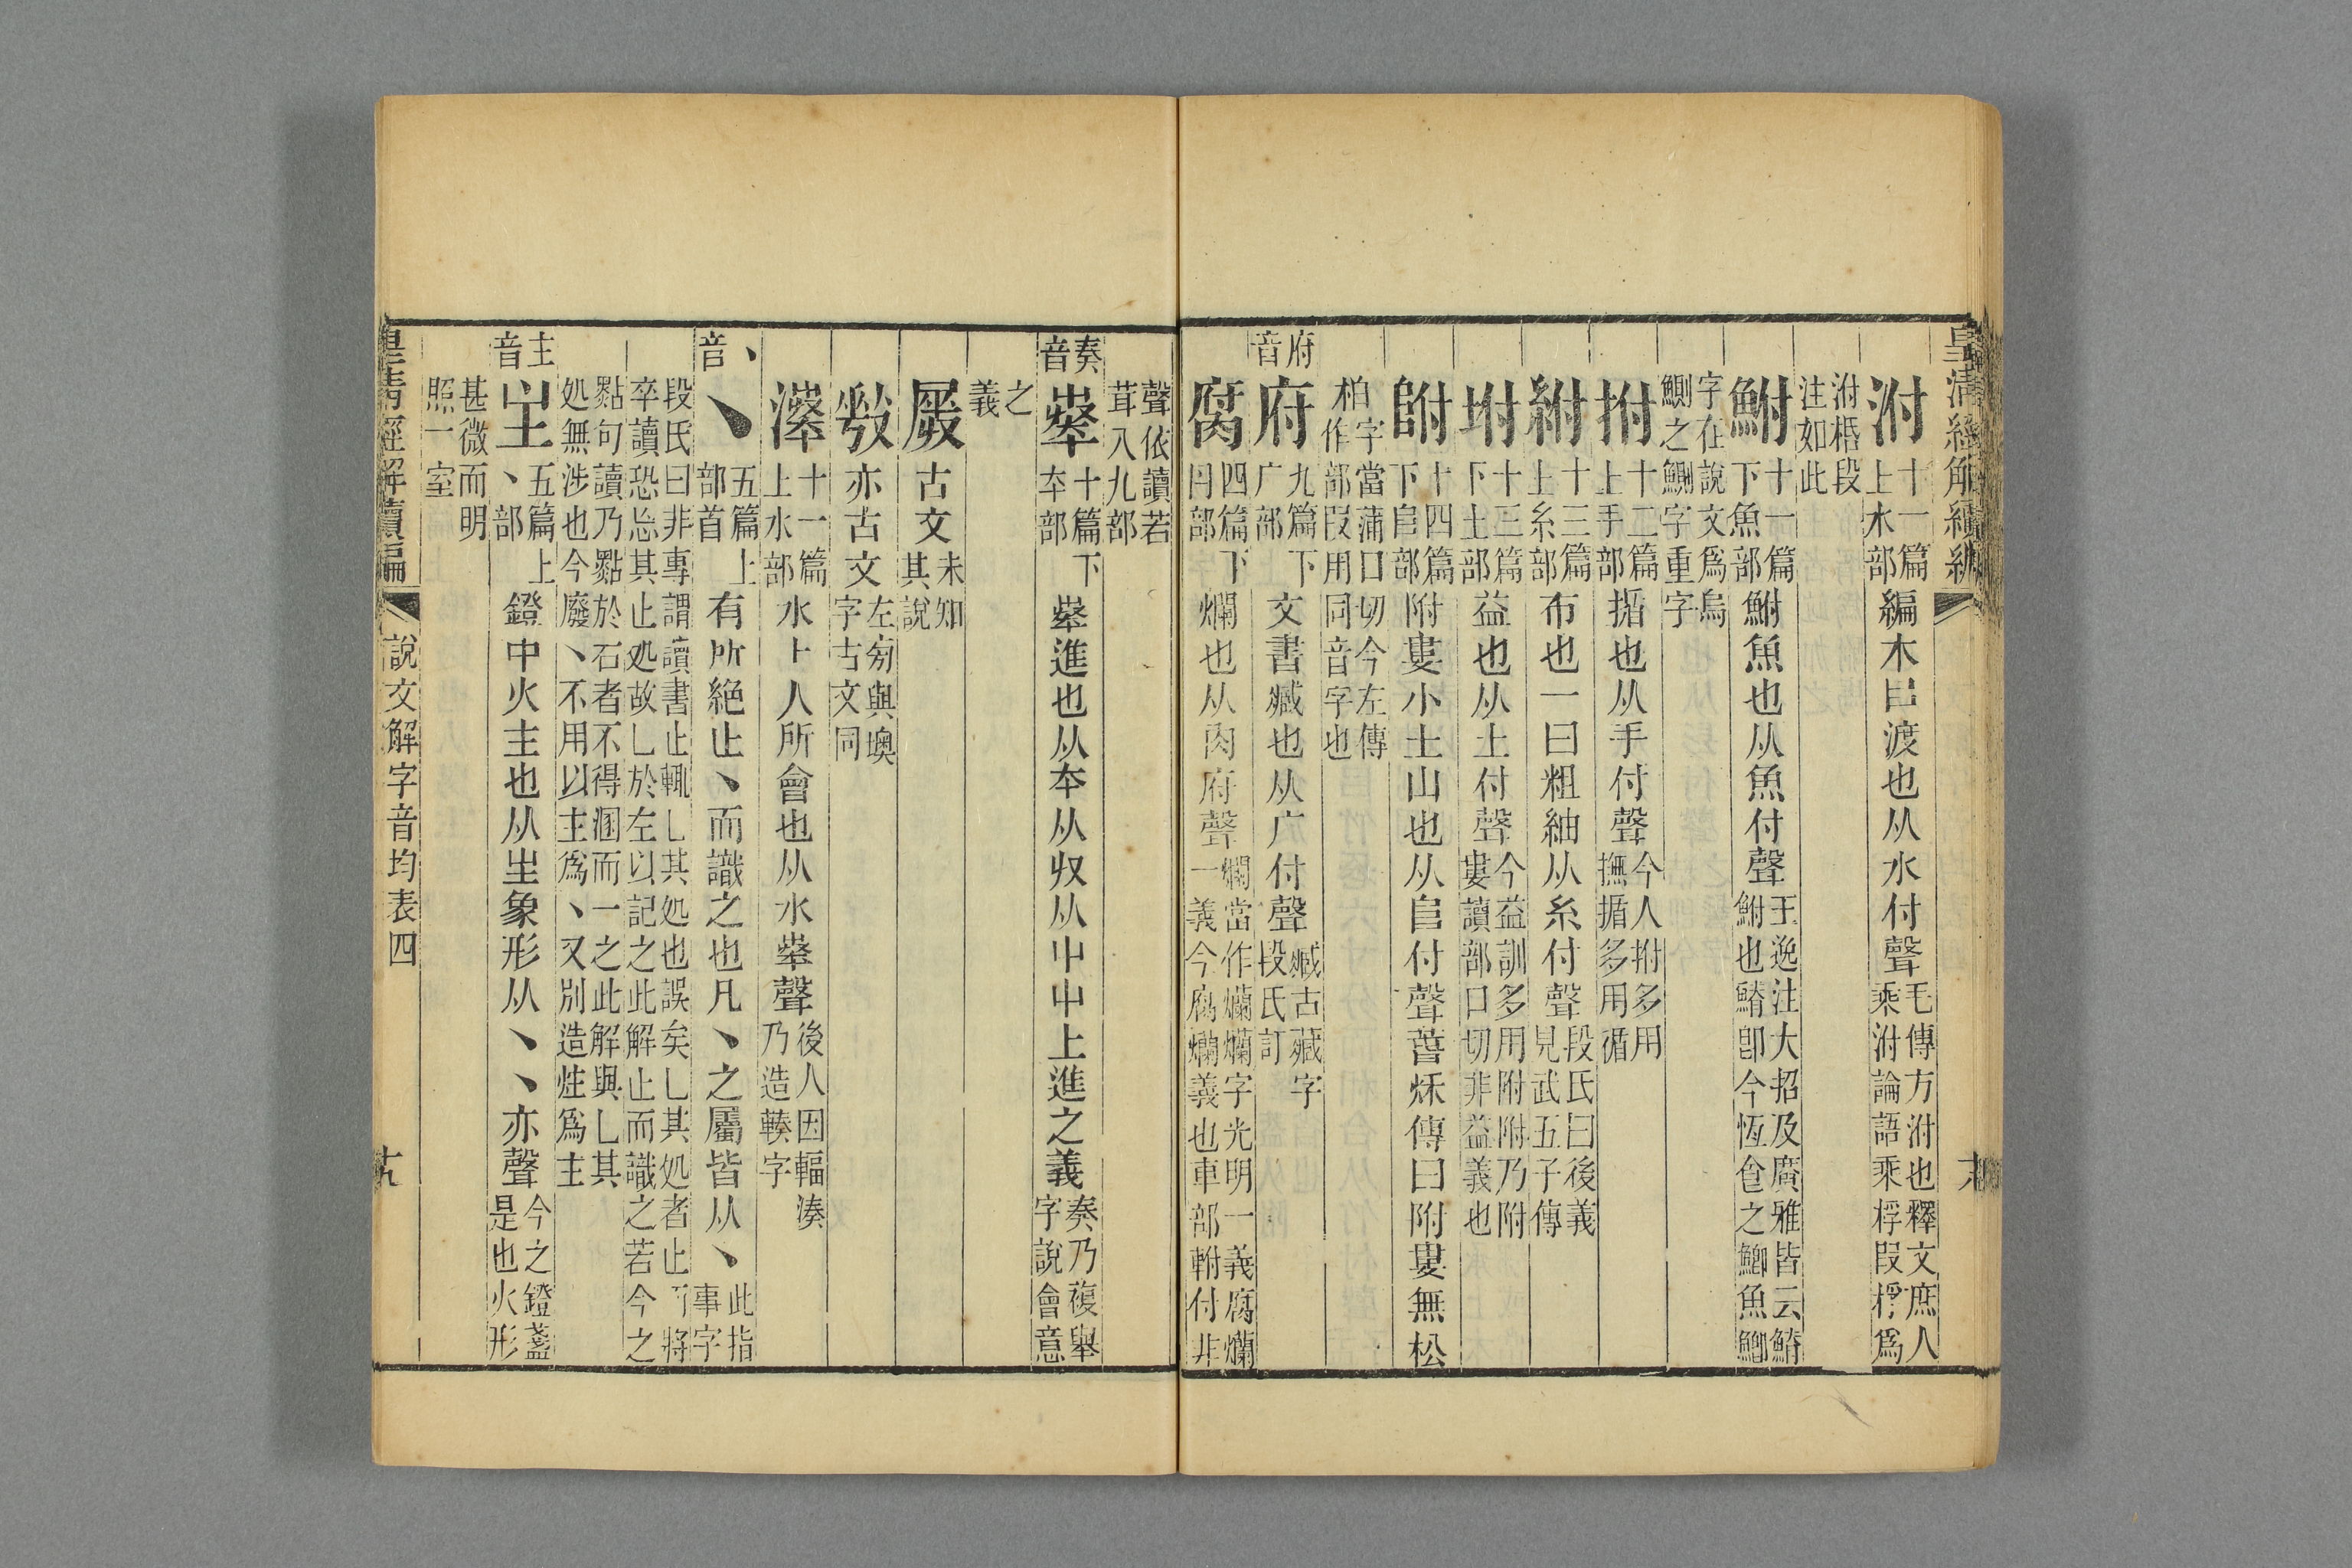 皇清經解續編
泭 十一篇上水部 編木㠯渡也从水付聲 毛傳方泭也釋文庶人乘泭論語乘桴叚桴爲
泭桰段注如此
鮒 十一篇下魚部 鮒魚也从魚付聲 王逸注大招及廣雅皆云鰿鮒也鰿卽今恆食之鯽魚鯽
字在說文爲烏鰂之鰂字重字
拊 十二篇上手部 揗也从手付聲 今人拊多用撫揗多用循
紨 十三篇上糸部 布也一曰粗紬从糸付聲 段氏曰後義見武五子傳
坿 十三篇下土部 益也从土付聲 今益訓多用附附乃附婁讀部口切非益義也
附 十四篇下𨸏部 附婁小土山也从𨸏付聲萅秌傳曰附婁無松
柏 字當蒲口切今左傳作部叚用同音字也
府音 府 九篇下广部 文書臧也从广付聲 臧古藏字段氏訂
腐 四篇下肉部 爛也从肉府聲 爛當作爛爛字光明一義腐爛一義今腐爛義也車部軵付非
聲依讀若茸入九部
奏音 奏 十篇下夲部 奏進也从夲从収从屮屮上進之義 奏乃複舉字說會意
之義
古文 未知其說
亦古文 左㫄與墺字古文同
湊 十一篇上水部 水上人所會也从水奏聲 後人因輻湊乃造輳字
丶音 丶 五篇上部首 有所絕止丶而識之也凡丶之屬皆从丶 此指事字
段氏曰非專謂讀書止輒乚其処也誤矣乚其処者止可將卒讀恐㤀其止処故乚於左以記之此解止而識之若今之
㸃句讀乃㸃於石者不得溷而一之此解與乚其処無涉也今廢丶不用以主爲丶又别造炷爲主
主音 主 五篇上丶部 鐙中火主也从㞷象形从丶丶亦聲 今之鐙盞是也火形
甚微而明照一室
皇清經解續編 說文解字音均表四 十九